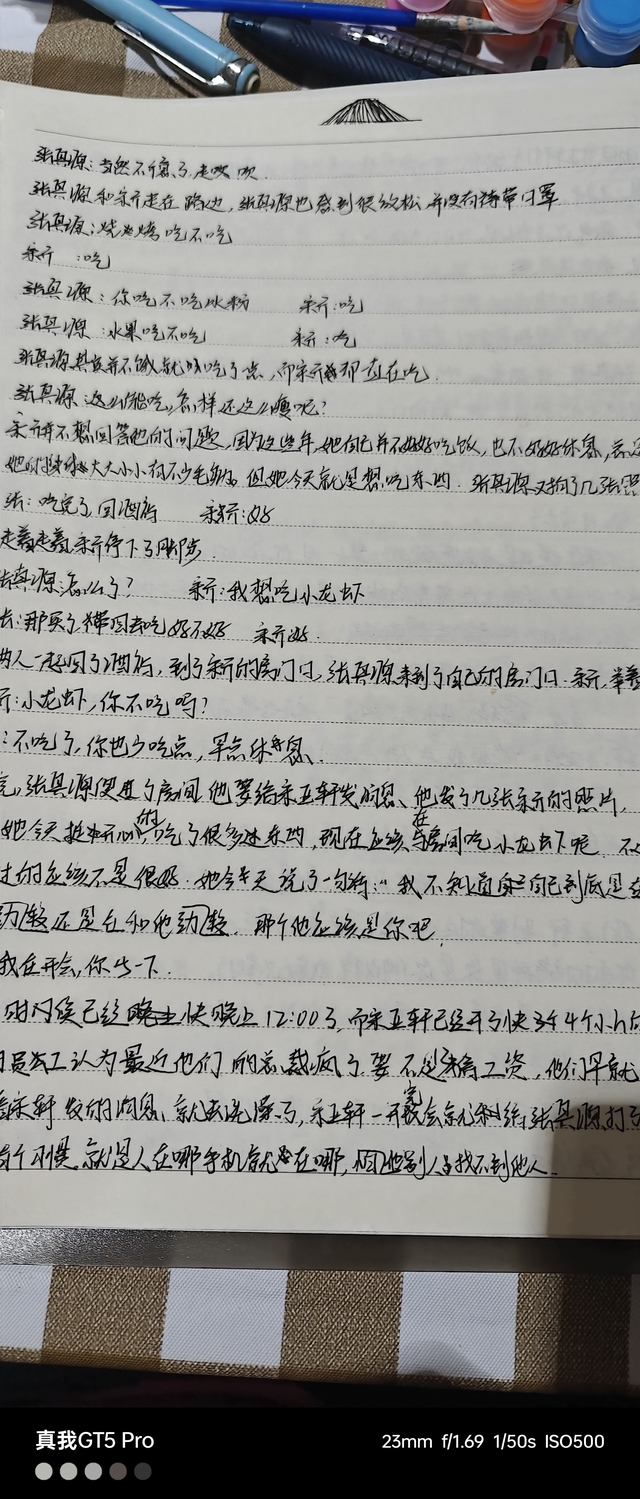 张真源:当然不介意了,走吹吹.
张真源和宋亓走在路边,张真源也感到很放松并没有特带口罩
张真源:烧烤吃不吃
宋亓:吃
张真源:你吃不吃冰粉 宋亓:吃
张真源:水果吃不吃 宋亓:吃
张真源其实并不饿就吃了点,而宋亓却一直在吃.
张真源:这么能吃,怎样还这么瘦呢?
宋亓并不想回答他的问题,因为这些年她自己并不好好吃饭,也不好好休息,
她的身体大大小小有不少毛病,但她今天就是想吃东西.张真源又拍了几张照
张:吃完了,回酒店 宋亓:好
走着走着,宋亓停下了脚步.
张真源:怎么了? 宋亓:我想吃小龙虾
张:那买了带回去吃好不好 宋亓:好.
两人一起回了酒店,到了宋亓的房门口,张真源来到了自己的房门口.宋亓
亓:小龙虾,你不吃吗?
:不吃了,你也少吃点,早点休息.
张真源便进了房间他要给宋亚轩发消息、他发了几张宋亓的照片,
她今天挺开心的,吃了很多东西,现在应该在房间吃小龙虾呢.
过的应该不是很好.她今天说了一句话:"我不知道自己到底是在
还是在和他 那个他应该是你吧.
我在开会,你等一下.
时候已经快晚上12:00了,而宋亚轩已经开了快4个小时
员工认为最近他们的总裁疯了要不是高工资,他们早就
宋轩发的消息、就去洗澡了,宋亚轩一开完会就给张真源打
有个习惯,就是人在哪手机就在哪,因他别人找不到他人.
真我GT5 Pro
23mm f/1.69 1/50s ISO500